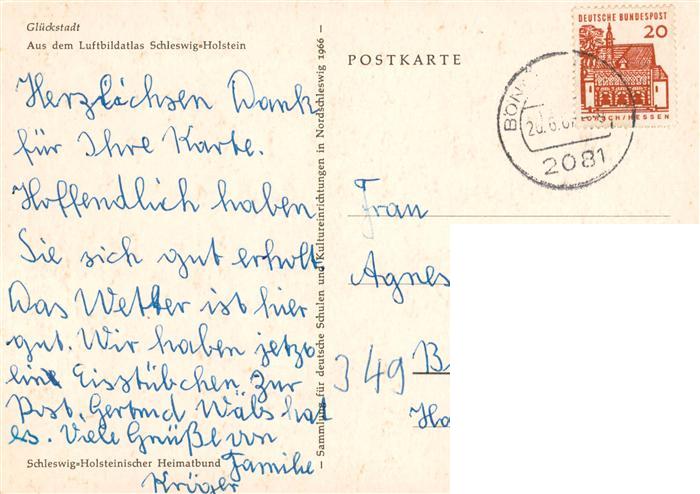 Glückstadt
Aus dem Luftbildatlas Schleswig=Holstein
Herzlichsen Dank
für Ihre Karte.
Hoffendlich haben
Sie sich gut erholt.
Das Wetter ist hier
gut. Wir haben jetzo
ein Eisstübchen. Zur
Post. Gertrud Wäls hat
es. Viele Grüße von
Familie
Krüger
Schleswig=Holsteinischer Heimatbund
— Sammlung für deutsche Schulen und Kultureinrichtungen in Nordschleswig 1966 —
POSTKARTE
DEUTSCHE BUNDESPOST
20
LORSCH/HESSEN
BÖN
20.6.67
2081
Frau
Agnes
349 B
Ha